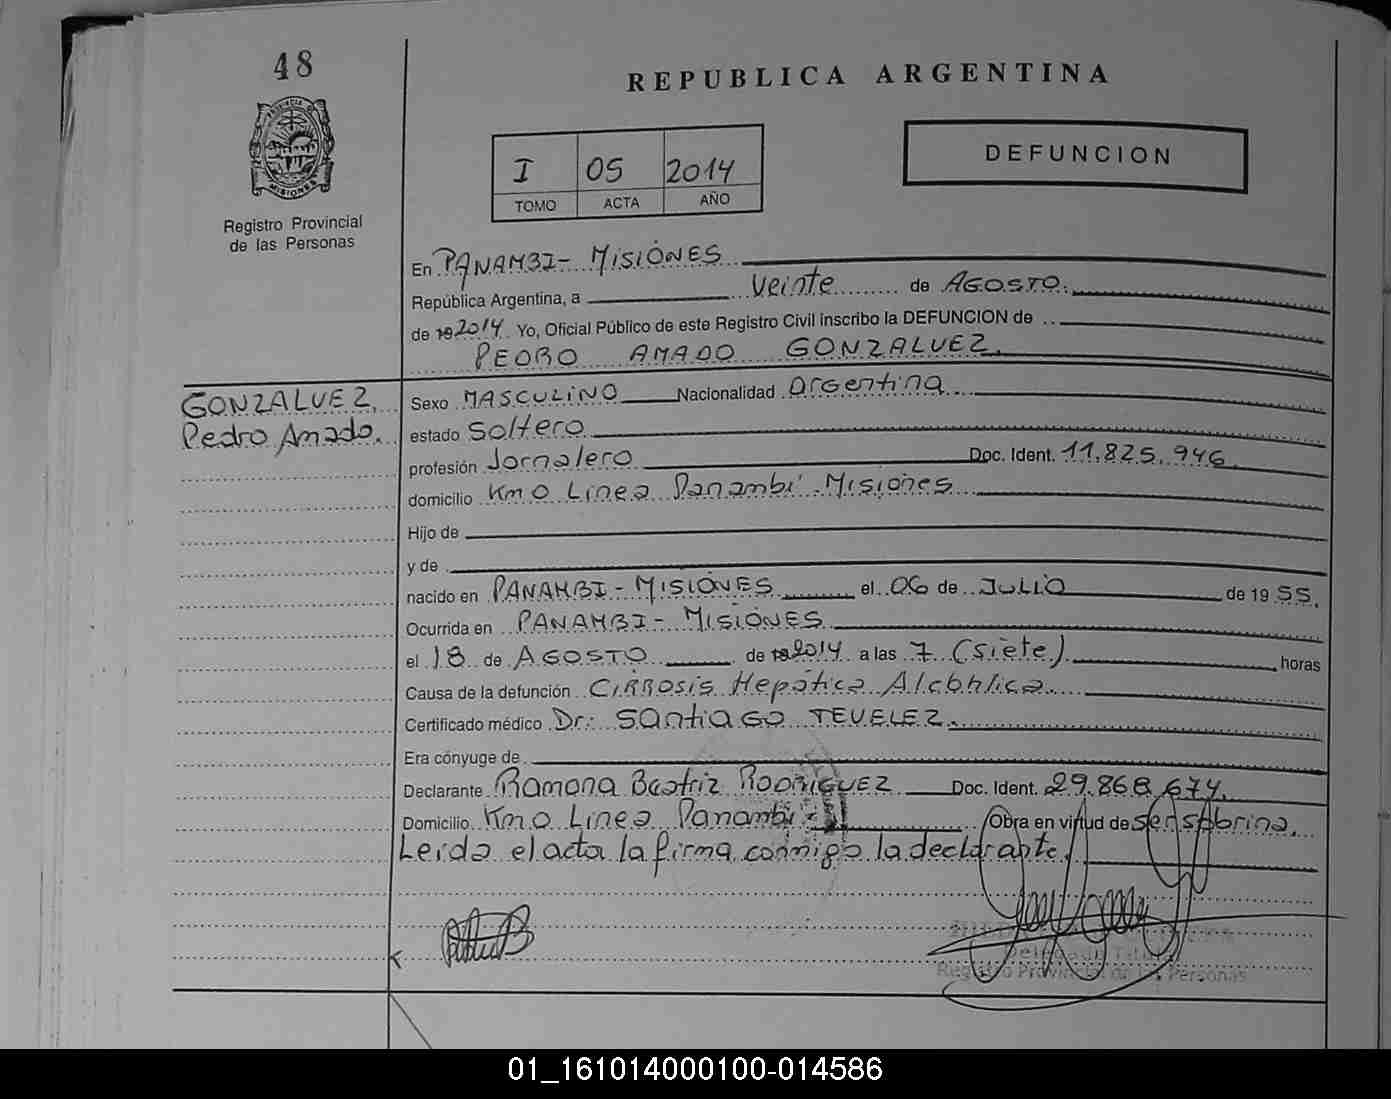 48
REPUBLICA ARGENTINA
DEFUNCION
I 05 2014
TOMO ACTA AÑO
PROVINCIA D
MISIONES
Registro Provincial
de las Personas
En PANAMBI - MISIONES
República Argentina, a veinte de AGOSTO.
de 19 2014 Yo, Oficial Público de este Registro Civil inscribo la DEFUNCION de
PEDRO AMADO GONZALVEZ.
GONZALVEZ,
Pedro Amado.
Sexo MASCULINO Nacionalidad Argentina
estado Soltero
profesión Jornalero Doc. Ident. 11.825.946.
domicilio Km 0 Linea Panambí - Misiones
Hijo de
y de
nacido en PANAMBI - MISIONES el 06 de JULIO de 19 55.
Ocurrida en PANAMBI - MISIONES
el 18 de AGOSTO de 19 2014 a las 7 (siete) horas
Causa de la defunción CIRROSIS Hepática Alcohlica
Certificado médico Dr.: SANTIAGO TEVELEZ.
Era cónyuge de
Declarante Ramona Beatriz RODRIGUEZ Doc. Ident. 29.868.674.
Domicilio Km 0 Linea Panambí - Obra en virtud de ser sobrina.
Leida el acta la firma conmigo la declarante.
Delegado Titular
Registro Provincial de las Personas
01_161014000100-014586